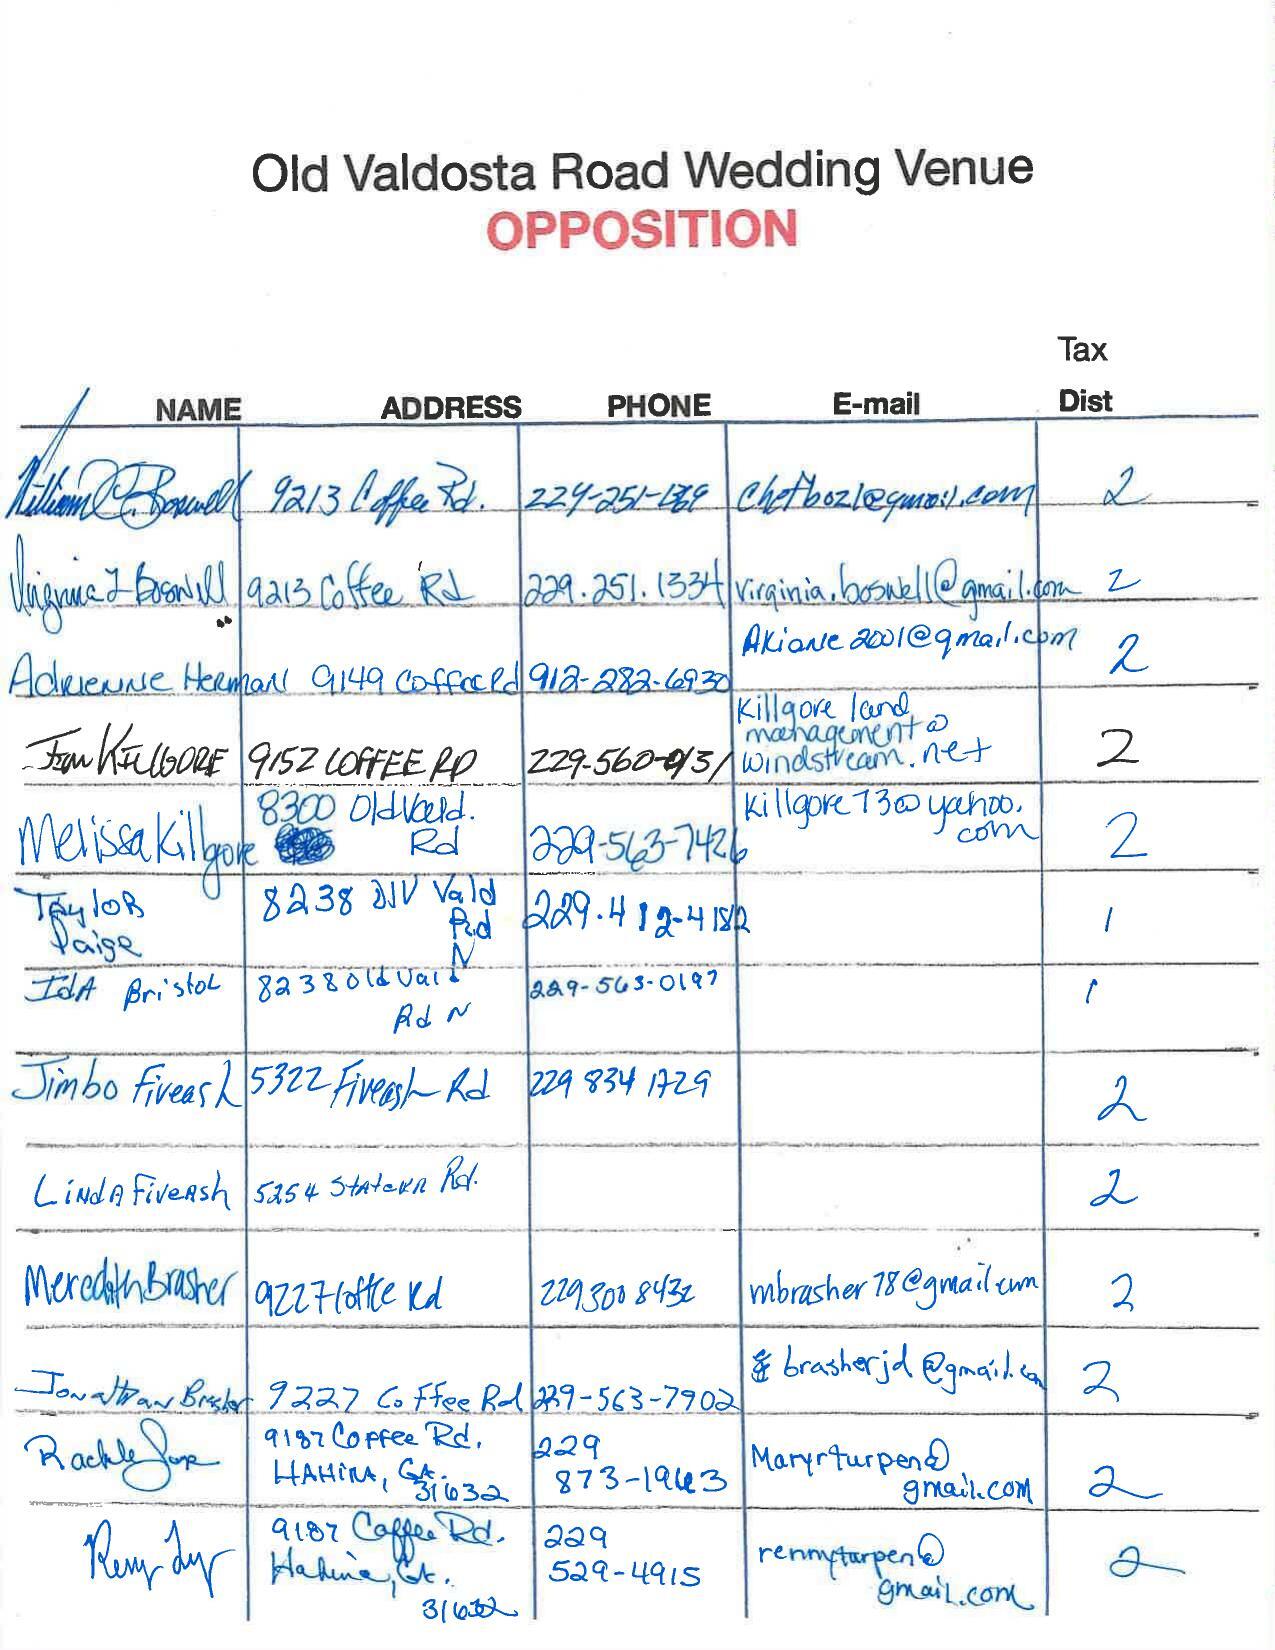 Old Valdosta Road Wedding Venue
OPPOSITION
Tax
NAME ADDRESS PHONE E-mail Dist
William Boswell 9213 Coffee Rd. chefboz1@gmail.com 2
Virginia L Boswell 9213 Coffee Rd 229.251.1334 virginia.boswell@gmail.com 2
Akiane2001@gmail.com
Adrienne Herman 9149 Coffee Rd 912-282-6930 2
Killgore land
management@
KILLGORE 9152 COFFEE RD windstream.net 2
8300 Old Vald. Killgore73@yahoo.
Melissa Killgore Rd 229-563-7426 com 2
Taylor 8238 Old Vald 229.412-4182 1
Paige Rd
N
Ida Bristol 8238 Old Vald 229-563-0197 1
Rd N
Jimbo Fiveash 5322 Fiveash Rd 229 834 1729 2
Linda Fiveash 5254 Rd. 2
Meredith Brasher 9227 Coffee Rd 229 300 8432 mbrasher78@gmail.com 2
brasherjd@gmail.com
Jonathan Brasher 9227 Coffee Rd 229-563-7902 2
9187 Coffee Rd. 229 Maryrturpen@
Hahira, GA. 873-1963 gmail.com 2
31632
9187 Coffee Rd. 229 rennyturpen@
Hahira, Ga. 529-4915 gmail.com 2
31632